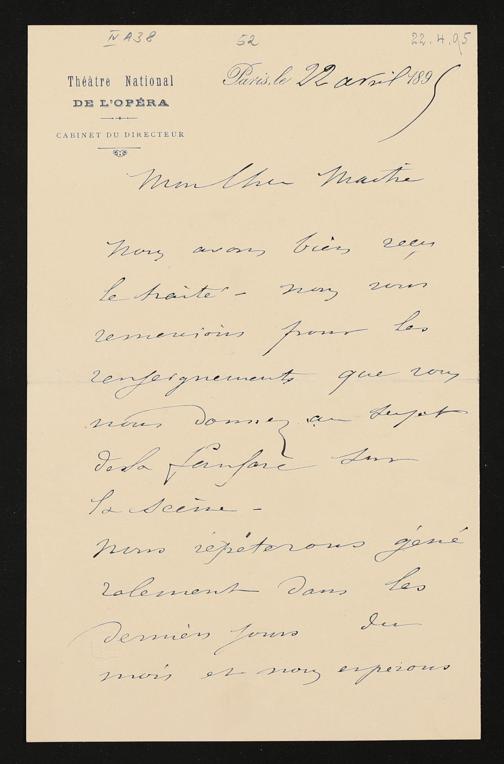 IV A 38
52
22.4.95
Théâtre National
DE L'OPÉRA
CABINET DU DIRECTEUR
Paris, le 22 avril 1895
Mon Cher Maître
Nous avons bien reçu
le traité - nous vous
remercions pour les
renseignements que vous
nous donnez au sujet
de la fanfare sur
la scène -
Nous répéterons géné
ralement dans les
derniers jours du
mois et nous espérons